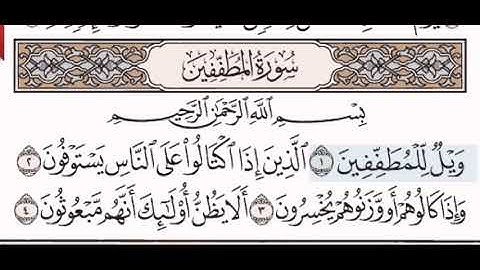 سُورَةُ الْمُطَفِّفِينَ
بِسْمِ اللَّهِ الرَّحْمَٰنِ الرَّحِيمِ
وَيْلٌ لِّلْمُطَفِّفِينَ ١ الَّذِينَ إِذَا اكْتَالُوا عَلَى النَّاسِ يَسْتَوْفُونَ ٢
وَإِذَا كَالُوهُمْ أَو وَّزَنُوهُمْ يُخْسِرُونَ ٣ أَلَا يَظُنُّ أُولَٰئِكَ أَنَّهُم مَّبْعُوثُونَ ٤